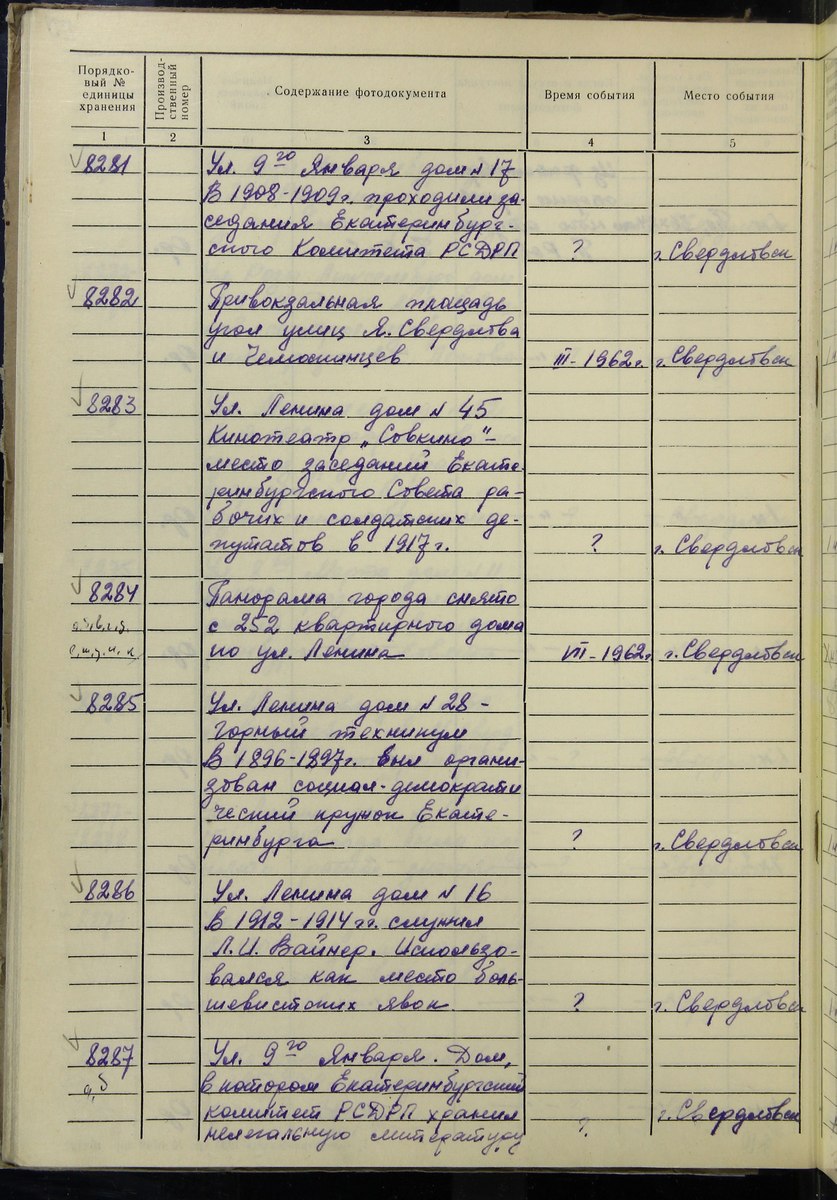 Порядко-
вый №
единицы
хранения
Производ-
ственный
номер
Содержание фотодокумента
Время события
Место события
1
2
3
4
5
8281
Ул. 9го Января дом N 17
В 1908-1909г. проходили за-
седания Екатеринбург-
ского Комитета РСДРП ? г. Свердловск
8282
Привокзальная площадь
угол улиц Я. Свердлова
и Челюскинцев III-1962г. г. Свердловск
8283
Ул. Ленина дом N 45
Кинотеатр „Совкино"-
место заседаний Екате-
ринбургского Совета ра-
бочих и солдатских де-
путатов в 1917г. ? г. Свердловск
8284
Панорама города снято
с 252 квартирного дома
по ул. Ленина VII-1962г. г. Свердловск
8285
Ул. Ленина дом N 28 -
горный техникум
В 1896-1897г. был органи-
зован социал-демократи
ческий кружок Екате-
ринбурга ? г. Свердловск
8286
Ул. Ленина дом N 16
В 1912-1914гг. служил
Л.И. Вайнер. Использо-
вался как место боль-
шевистских явок. ? г. Свердловск
8287
а, б
Ул. 9го Января. Дом,
в котором Екатеринбургский
комитет РСДРП хранил г. Свердловск
нелегальную литературу ?